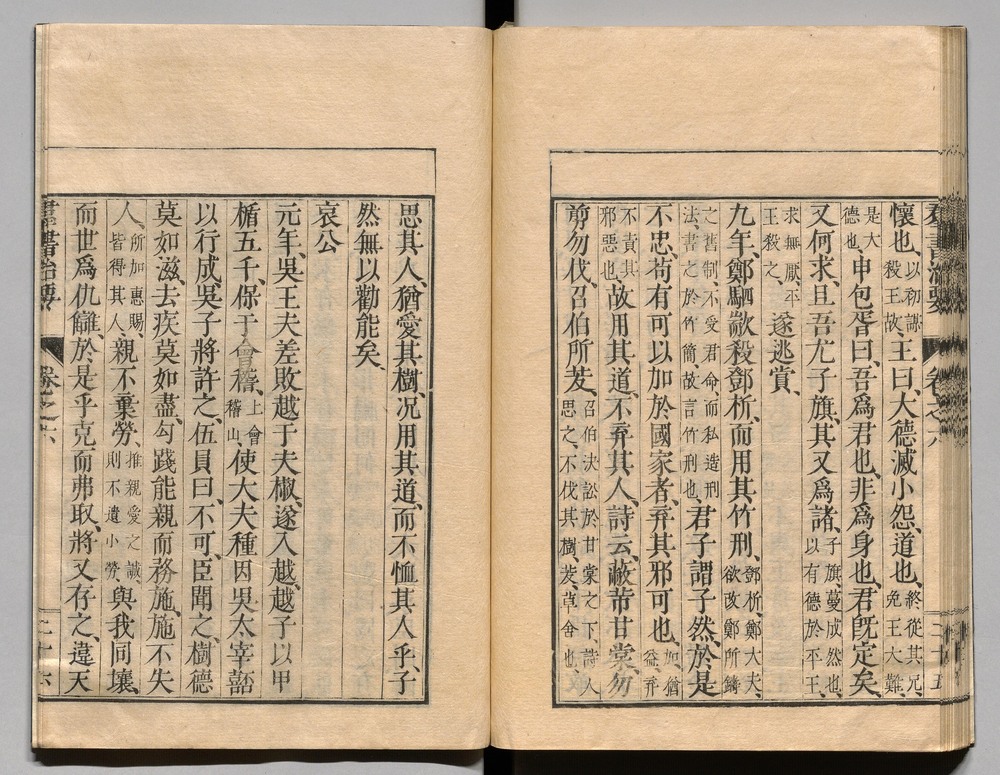 羣書治要 卷之六 二十五
懷也、以初謀殺王故、王曰、大德滅小怨、道也、終從其兄、免王大難、
是大德也、申包胥曰、吾爲君也、非爲身也、君既定矣、
又何求、且吾尤子旗、其又爲諸、子旗蔓成然也、以有德於平王、
求無厭、平王殺之、遂逃賞、
九年、鄭駟歂殺鄧析、而用其竹刑、鄧析、鄭大夫、欲改鄭所鑄
之舊制、不受君命、而私造刑法、書之於竹簡、故言竹刑也、君子謂子然、於是
不忠、苟有可以加於國家者、弃其邪可也、加、猶益、弃
不責其邪惡也、故用其道、不弃其人、詩云、蔽芾甘棠、勿
剪勿伐、召伯所茇、召伯決訟於甘棠之下、詩人思之、不伐其樹、茇、草舍也、
思其人、猶愛其樹、况用其道、而不恤其人乎、子
然無以勸能矣、
哀公
元年、吳王夫差敗越于夫椒、遂入越、越子以甲
楯五千、保于會稽、上會稽山、使大夫種因吳太宰嚭
以行成、吳子將許之、伍員曰、不可、臣聞之、樹德
莫如滋、去疾莫如盡、勾踐能親而務施、施不失
人、所加惠賜、皆得其人、親不棄勞、推親愛之誠、則不遺小勞、與我同壤、
而世爲仇讎、於是乎克而弗取、將又存之、違天
羣書治要 卷之六 二十六